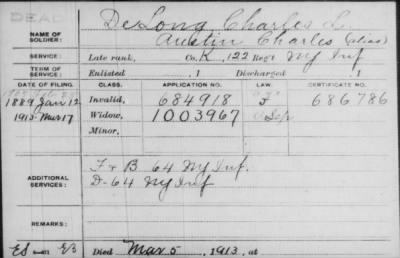 DEAD
DeLong, Charles L.
NAME OF SOLDIER:
Austin Charles (alias)
SERVICE: Late rank, Co. K, 122 Reg't NY Inf
TERM OF SERVICE: Enlisted , 1 Discharged , 1
DATE OF FILING. CLASS. APPLICATION NO. LAW. CERTIFICATE NO.
1889 Jan 12 Invalid, 684918 686786
1913 Mar 17 Widow, 1003967
Minor,
ADDITIONAL SERVICES: F & B 64 NY Inf.
D-64 NY Inf
REMARKS:
Died Mar 5, 1913, at